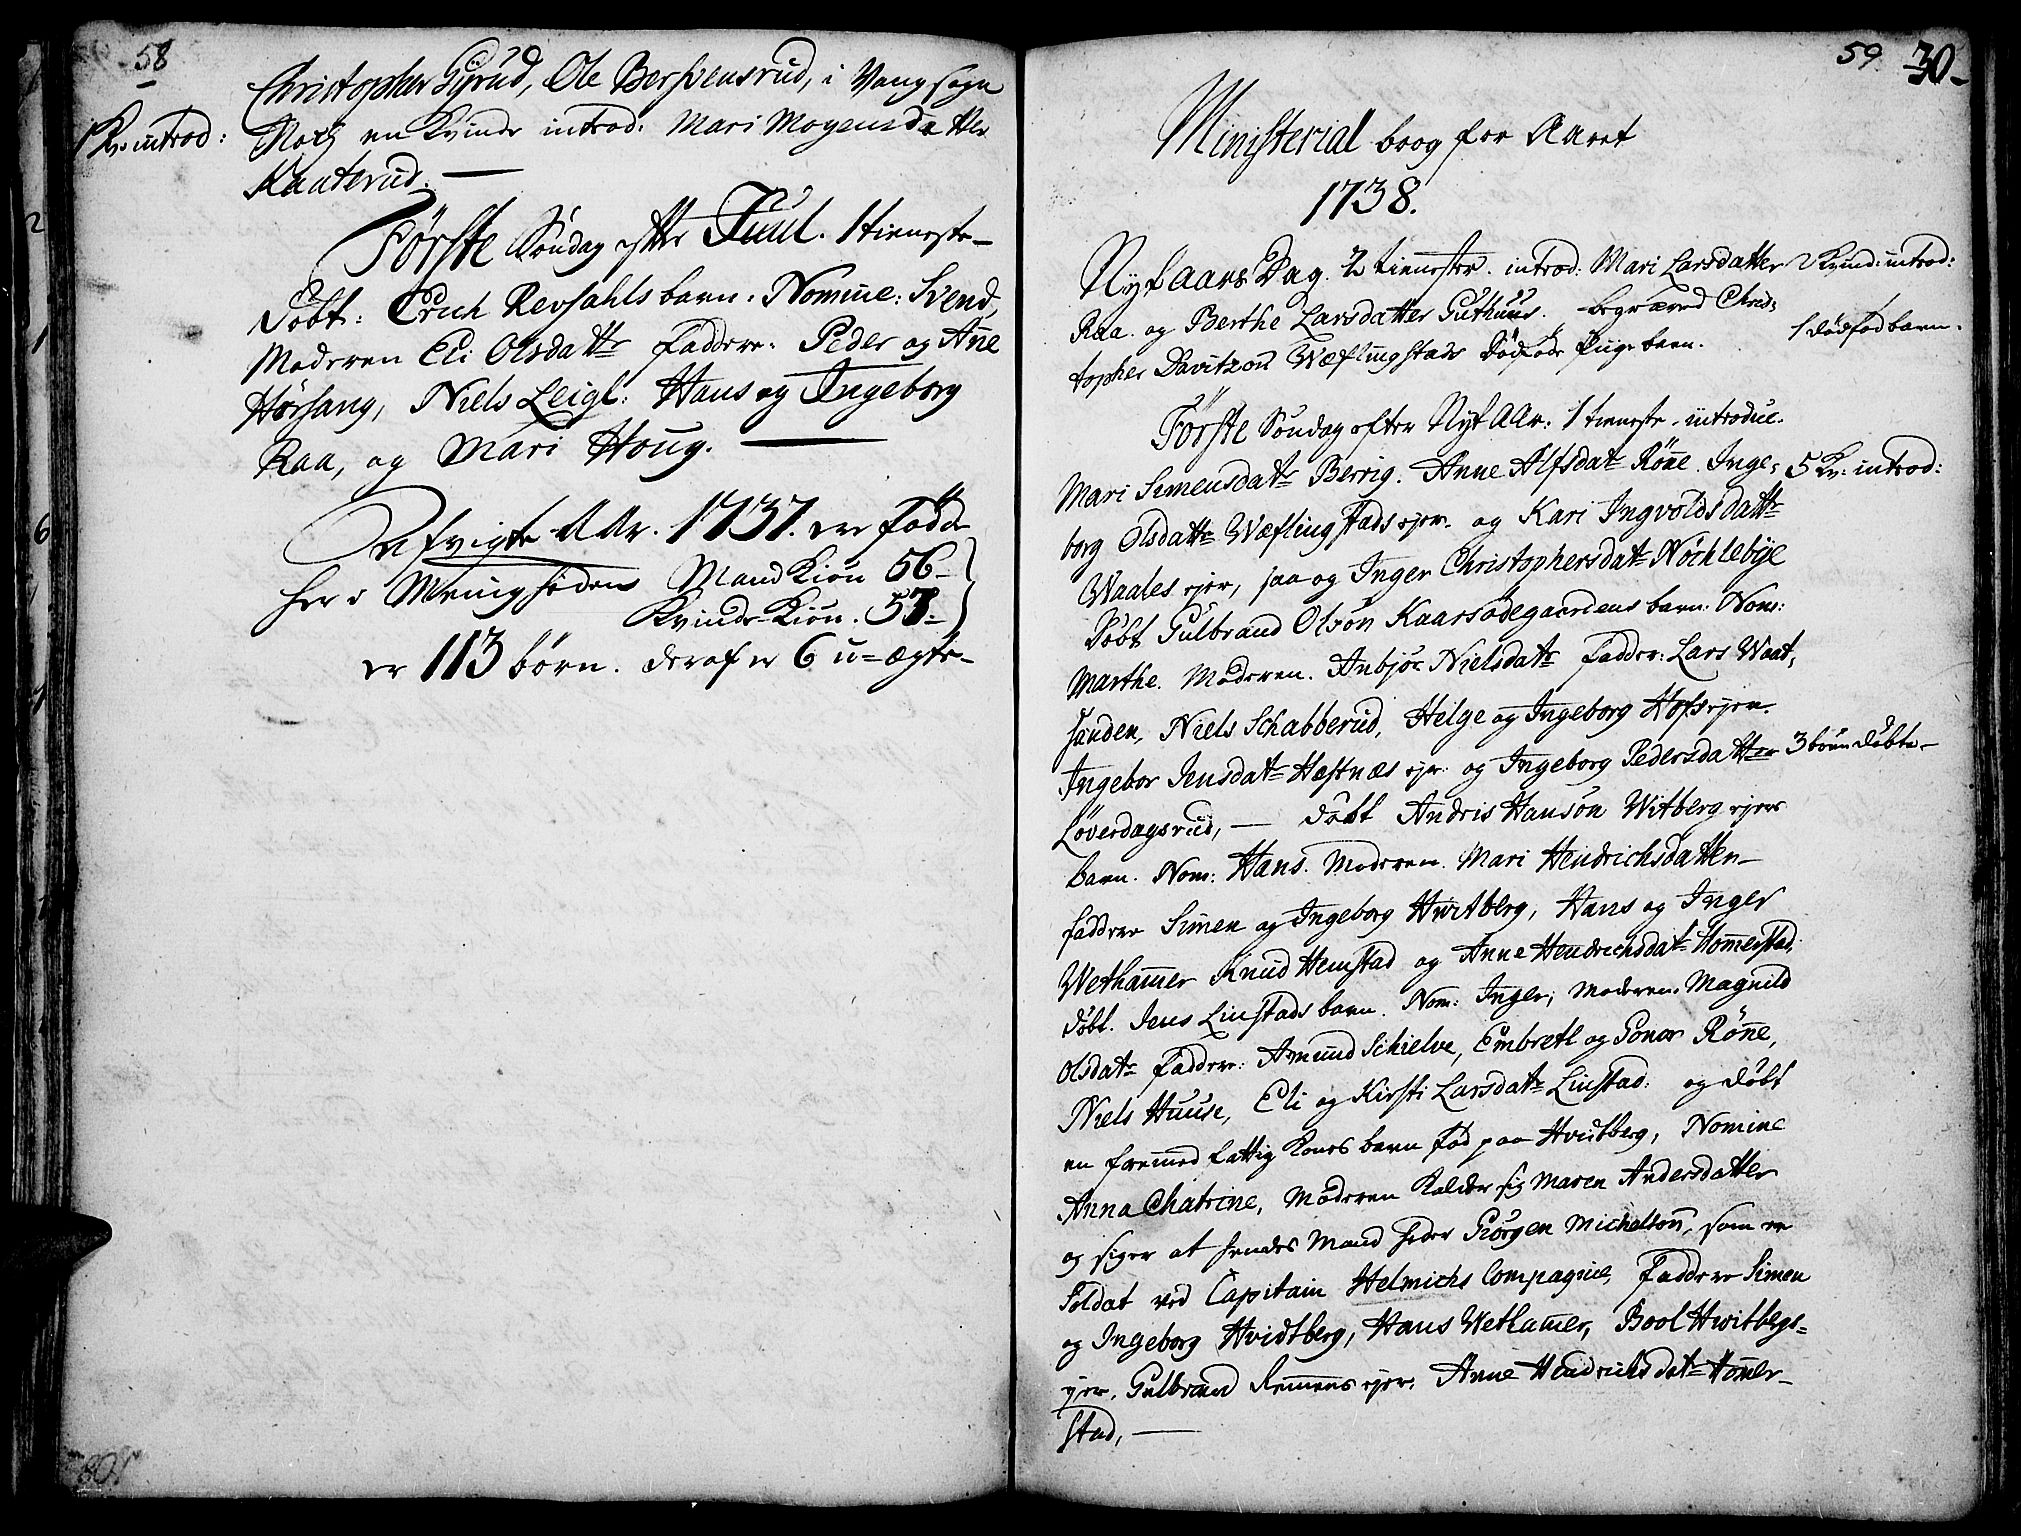 58
Christopher Gÿrud, Ole Berhvensrud, i Vang sogn
1 Kv: introd:
Noch en Kvinde introd: Mari Mogensdatter
Kaaterud. —
Förste Söndag efter Juul. 1 tieneste-
döbt: Erich Revsahls barn. Nomine: Svend,
Moderen Eli Olsdattr Faddere. Peder og Añe
Hörsang, Niels Leigl: Hans og Ingeborg
Raa, og Mari Houg. —
Afvigte AAr. 1737. ere Födde
her i Meenigheden Mand Kiön 56-
Kvinde-Kiön. 57-
er 113 börn. deraf er 6 u-ægte-
59 30-
Ministerial boog for Aaret
1738.
Nyt aars Dag. 2 tienester. introd: Mari Larsdatter
2 Kvind: introd:
Raa. og Berthe Larsdatter Guthuus. begraved Chris-
topher Davitzon Wæflingstads dödföde Piige barn.
1 dödfød barn.
Förste Söndag efter Nyt AAr. 1 tieneste. introduc.
Mari Simensdatr Berrig. Anne Alfsdatr Röñe. Inge-
5 Kv: introd:
borg Olsdattr Wæflingstads ejer. og Kari Ingvoldsdattr
Waales ejer, saa og Inger Christophersdatr Nöchlebÿe
Döbt Gulbrand Olsön Kaarsødegaardens barn. Nom:
Marthe. Moderen. Anbjör Nielsdatr Fadder: Lars Waat-
sanden, Niels Schabberud, Helge og Ingeborg Hofs ejer.
Ingebor Jensdatr Hæstnæs ejer. og Ingeborg Pedersdatter
3 börn döbte-
Löverdagsrud, — döbt Andris Hansön Witberg ejers
barn. Nom: Hans. Moderen. Mari Hendrichsdatter-
faddere Simen og Ingeborg Hwitberg, Hans og Inger
Wethamer Knud Hemstad og Anne Hendrichsdatr Homerstad.
döbt. Jens Linstads barn. Nom: Inger; Moderen. Magnild
Olsdatr Faddere: Amund Schielve, Embretl og Gonor Röñe,
Niels Huuse, Eli og Kirsti Larsdatr Linstad: og döbt
en fremmed fattig Kones barn Fød paa Hvidtberg, Nomine
Anna Chatrine, Moderen Kalder sig Maren Andersdatter
og siger at hendes Mand heder Giörgen Michelsön, som er
Soldat ved Capitain Helmichs Compagnie, Faddere Simen
og Ingeborg Hvidtberg, Hans Wethamer, Bool Hwitbergs-
ejer, Gulbrand Remmens ejer. Anne Hendrichsdatr Homer-
stad, —